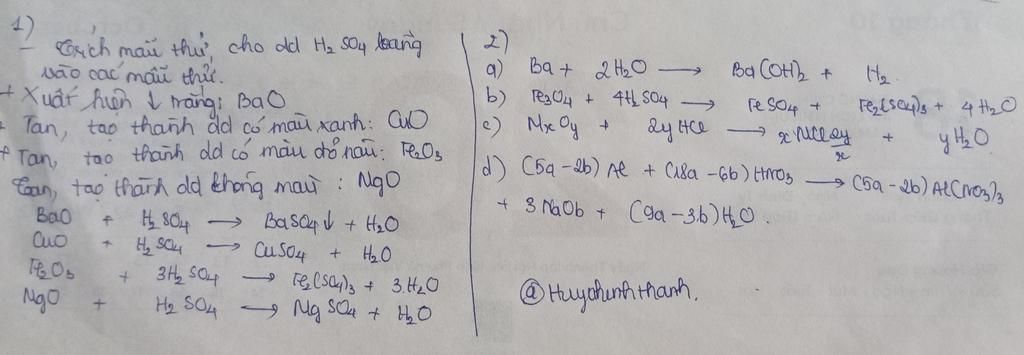 1)
- Trích mẫu thử, cho dd H₂SO₄ loãng
vào các mẫu thử.
+ Xuất hiện ↓ trắng: BaO
+ Tan, tạo thành dd có màu xanh: CuO
+ Tan, tạo thành dd có màu đỏ nâu: Fe₂O₃
Tan, tạo thành dd không màu: MgO
BaO + H₂SO₄ → BaSO₄↓ + H₂O
CuO + H₂SO₄ → CuSO₄ + H₂O
Fe₂O₃ + 3H₂SO₄ → Fe₂(SO₄)₃ + 3H₂O
MgO + H₂SO₄ → MgSO₄ + H₂O
2)
a) Ba + 2H₂O → Ba(OH)₂ + H₂.
b) Fe₃O₄ + 4H₂SO₄ → FeSO₄ + Fe₂(SO₄)₃ + 4H₂O
c) MxOy + 2yHCl → xMCl2y/x + yH₂O
d) (5a-2b)Al + (18a-6b)HNO₃ → (5a-2b)Al(NO₃)₃
+ 3NaOb + (9a-3b)H₂O.
@Huyohinhthanh.